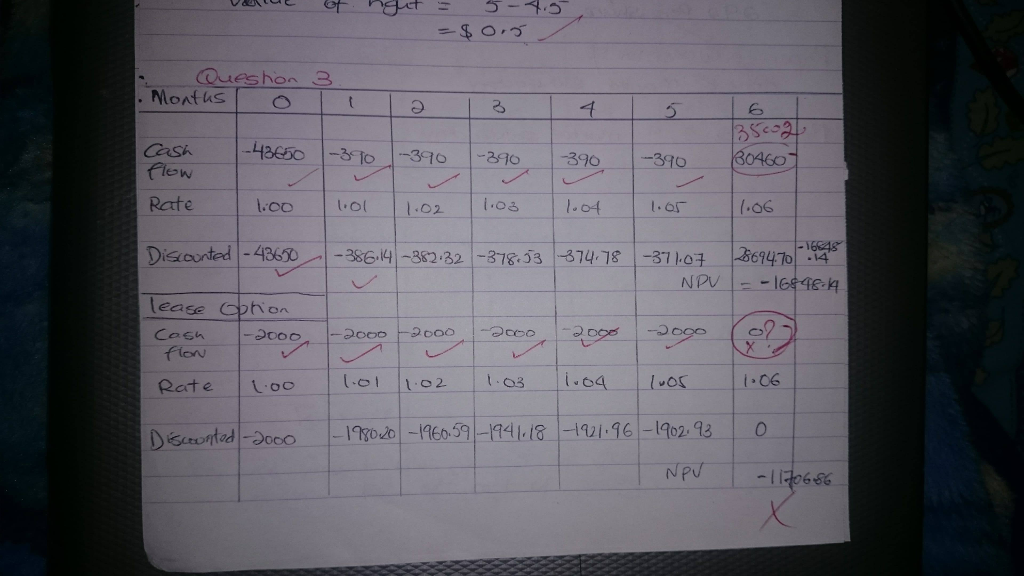 value of right = 5 - 4.5
= $ 0.5
Question 3
Months 0 1 2 3 4 5 6
35002
Cash flow -43650 -390 -390 -390 -390 -390 30460
Rate 1.00 1.01 1.02 1.03 1.04 1.05 1.06
Discounted -43650 -386.14 -382.32 -378.53 -374.78 -371.07 28694.70 -16848.14
NPV = -16848.14
lease Option
Cash flow -2000 -2000 -2000 -2000 -2000 -2000 0 ?
x
Rate 1.00 1.01 1.02 1.03 1.04 1.05 1.06
Discounted -2000 -1980.20 -1960.59 -1941.18 -1921.96 -1902.93 0
NPV -11706.86
X